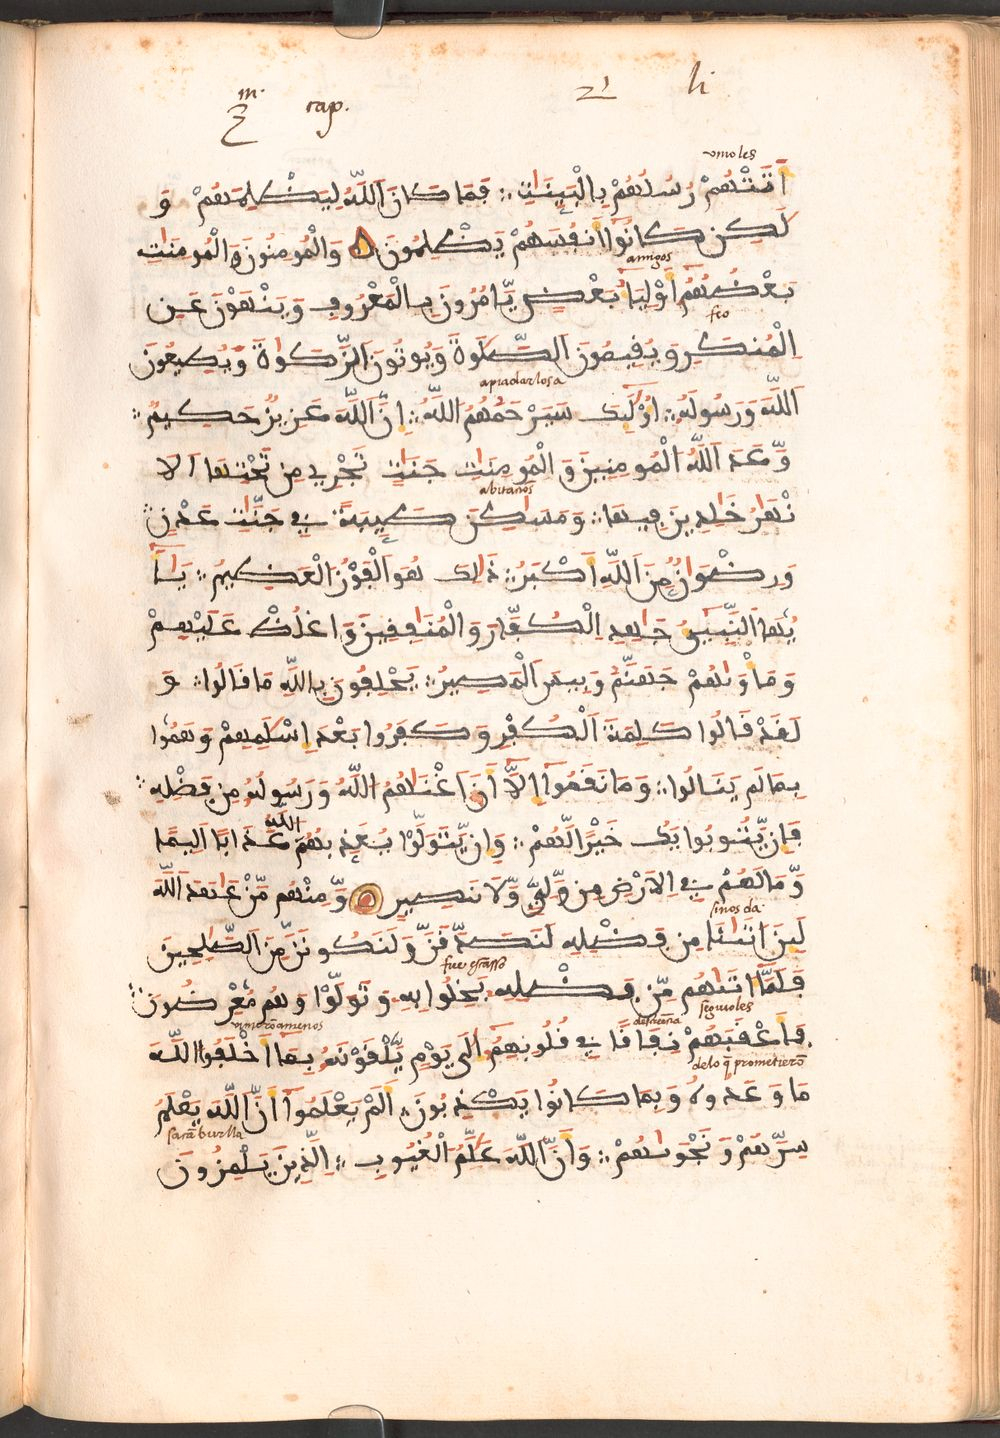 m. cap. 21 li
vinoles
أَتَتْهُمْ رُسُلُهُم بِالْبَيِّنَٰتِ فَمَا كَانَ اَللَّهُ لِيَظْلِمَهُمْ وَ
لَٰكِن كَانُوا أَنفُسَهُمْ يَظْلِمُونَ وَالْمُومِنُونَ وَالْمُومِنَٰتِ
amigos
بَعْضُهُمْ أَوْلِيَاءُ بَعْضٍ يَّامُرُونَ بِالْمَعْرُوفِ وَيَنْهَوْنَ عَنِ
feo
اِلْمُنكَرِ وَيُقِيمُونَ اَلصَّلَوٰةَ وَيُوتُونَ اَلزَّكَوٰةَ وَيُطِيعُونَ
apiadarlosa
اَللَّهَ وَرَسُولَهُ أُوْلَٰئِكَ سَيَرْحَمُهُمُ اُللَّهُ إِنَّ اَللَّهَ عَزِيزٌ حَكِيمٌ
وَّعَدَ اَللَّهُ اُلْمُومِنِينَ وَالْمُومِنَٰتِ جَنَّٰتٍ تَجْرِي مِن تَحْتِهَا اَلَا
abitaños
نْهَٰرُ خَٰلِدِينَ فِيهَا وَمَسَٰكِنَ طَيِّبَةً فِي جَنَّٰتِ عَدْنٍ
وَرِضْوَٰنٌ مِّنَ اَللَّهِ أَكْبَرُ ذَٰلِكَ هُوَ اَلْفَوْزُ الْعَظِيمُ يَٰأَ
يُّهَا اَلنَّبِيُّ جَٰهِدِ اِلْكُفَّارَ وَالْمُنَٰفِقِينَ وَاغْلُظْ عَلَيْهِمْ
وَمَأْوَىٰهُمْ جَهَنَّمُ وَبِيسَ اَلْمَصِيرُ يَحْلِفُونَ بِاللَّهِ مَا قَالُوا وَ
لَقَدْ قَالُوا كَلِمَةَ اَلْكُفْرِ وَكَفَرُوا بَعْدَ إِسْلَٰمِهِمْ وَهَمُّوا
بِمَا لَمْ يَنَالُوا وَمَا نَقَمُوا إِلَّا أَنَ اَغْنَىٰهُمُ اُللَّهُ وَرَسُولُهُ مِن فَضْلِهِ
فَإِن يَّتُوبُوا يَكُ خَيْرًا لَّهُمْ وَإِن يَّتَوَلَّوْا يُعَذِّبْهُمُ اللَّهُ عَذَابًا أَلِيمًا
وَّمَا لَهُمْ فِي الَارْضِ مِن وَّلِيٍّ وَّلَا نَصِيرٍ وَّمِنْهُم مَّنْ عَٰهَدَ اَللَّهَ
sinos da
لَئِنَ اتَىٰنَا مِن فَضْلِهِ لَنَصَّدَّقَنَّ وَلَنَكُونَنَّ مِنَ اَلصَّٰلِحِينَ
fue escasso
فَلَمَّا اتَىٰهُم مِّن فَضْلِهِ بَخِلُوا بِهِ وَتَوَلَّوْا وَهُم مُّعْرِضُونَ
seguioles
descreencia
فَأَعْقَبَهُمْ نِفَاقًا فِي قُلُوبِهِمُ إِلَىٰ يَوْمِ يَلْقَوْنَهُ بِمَا أَخْلَفُوا اُللَّهَ
delo q̃ prometierõ
مَا وَعَدُوهُ وَبِمَا كَانُوا يَكْذِبُونَ أَلَمْ يَعْلَمُوا أَنَّ اَللَّهَ يَعْلَمُ
sarã burlla
سِرَّهُمْ وَنَجْوَىٰهُمْ وَأَنَّ اَللَّهَ عَلَّٰمُ الْغُيُوبِ اِلَّذِينَ يَلْمِزُونَ